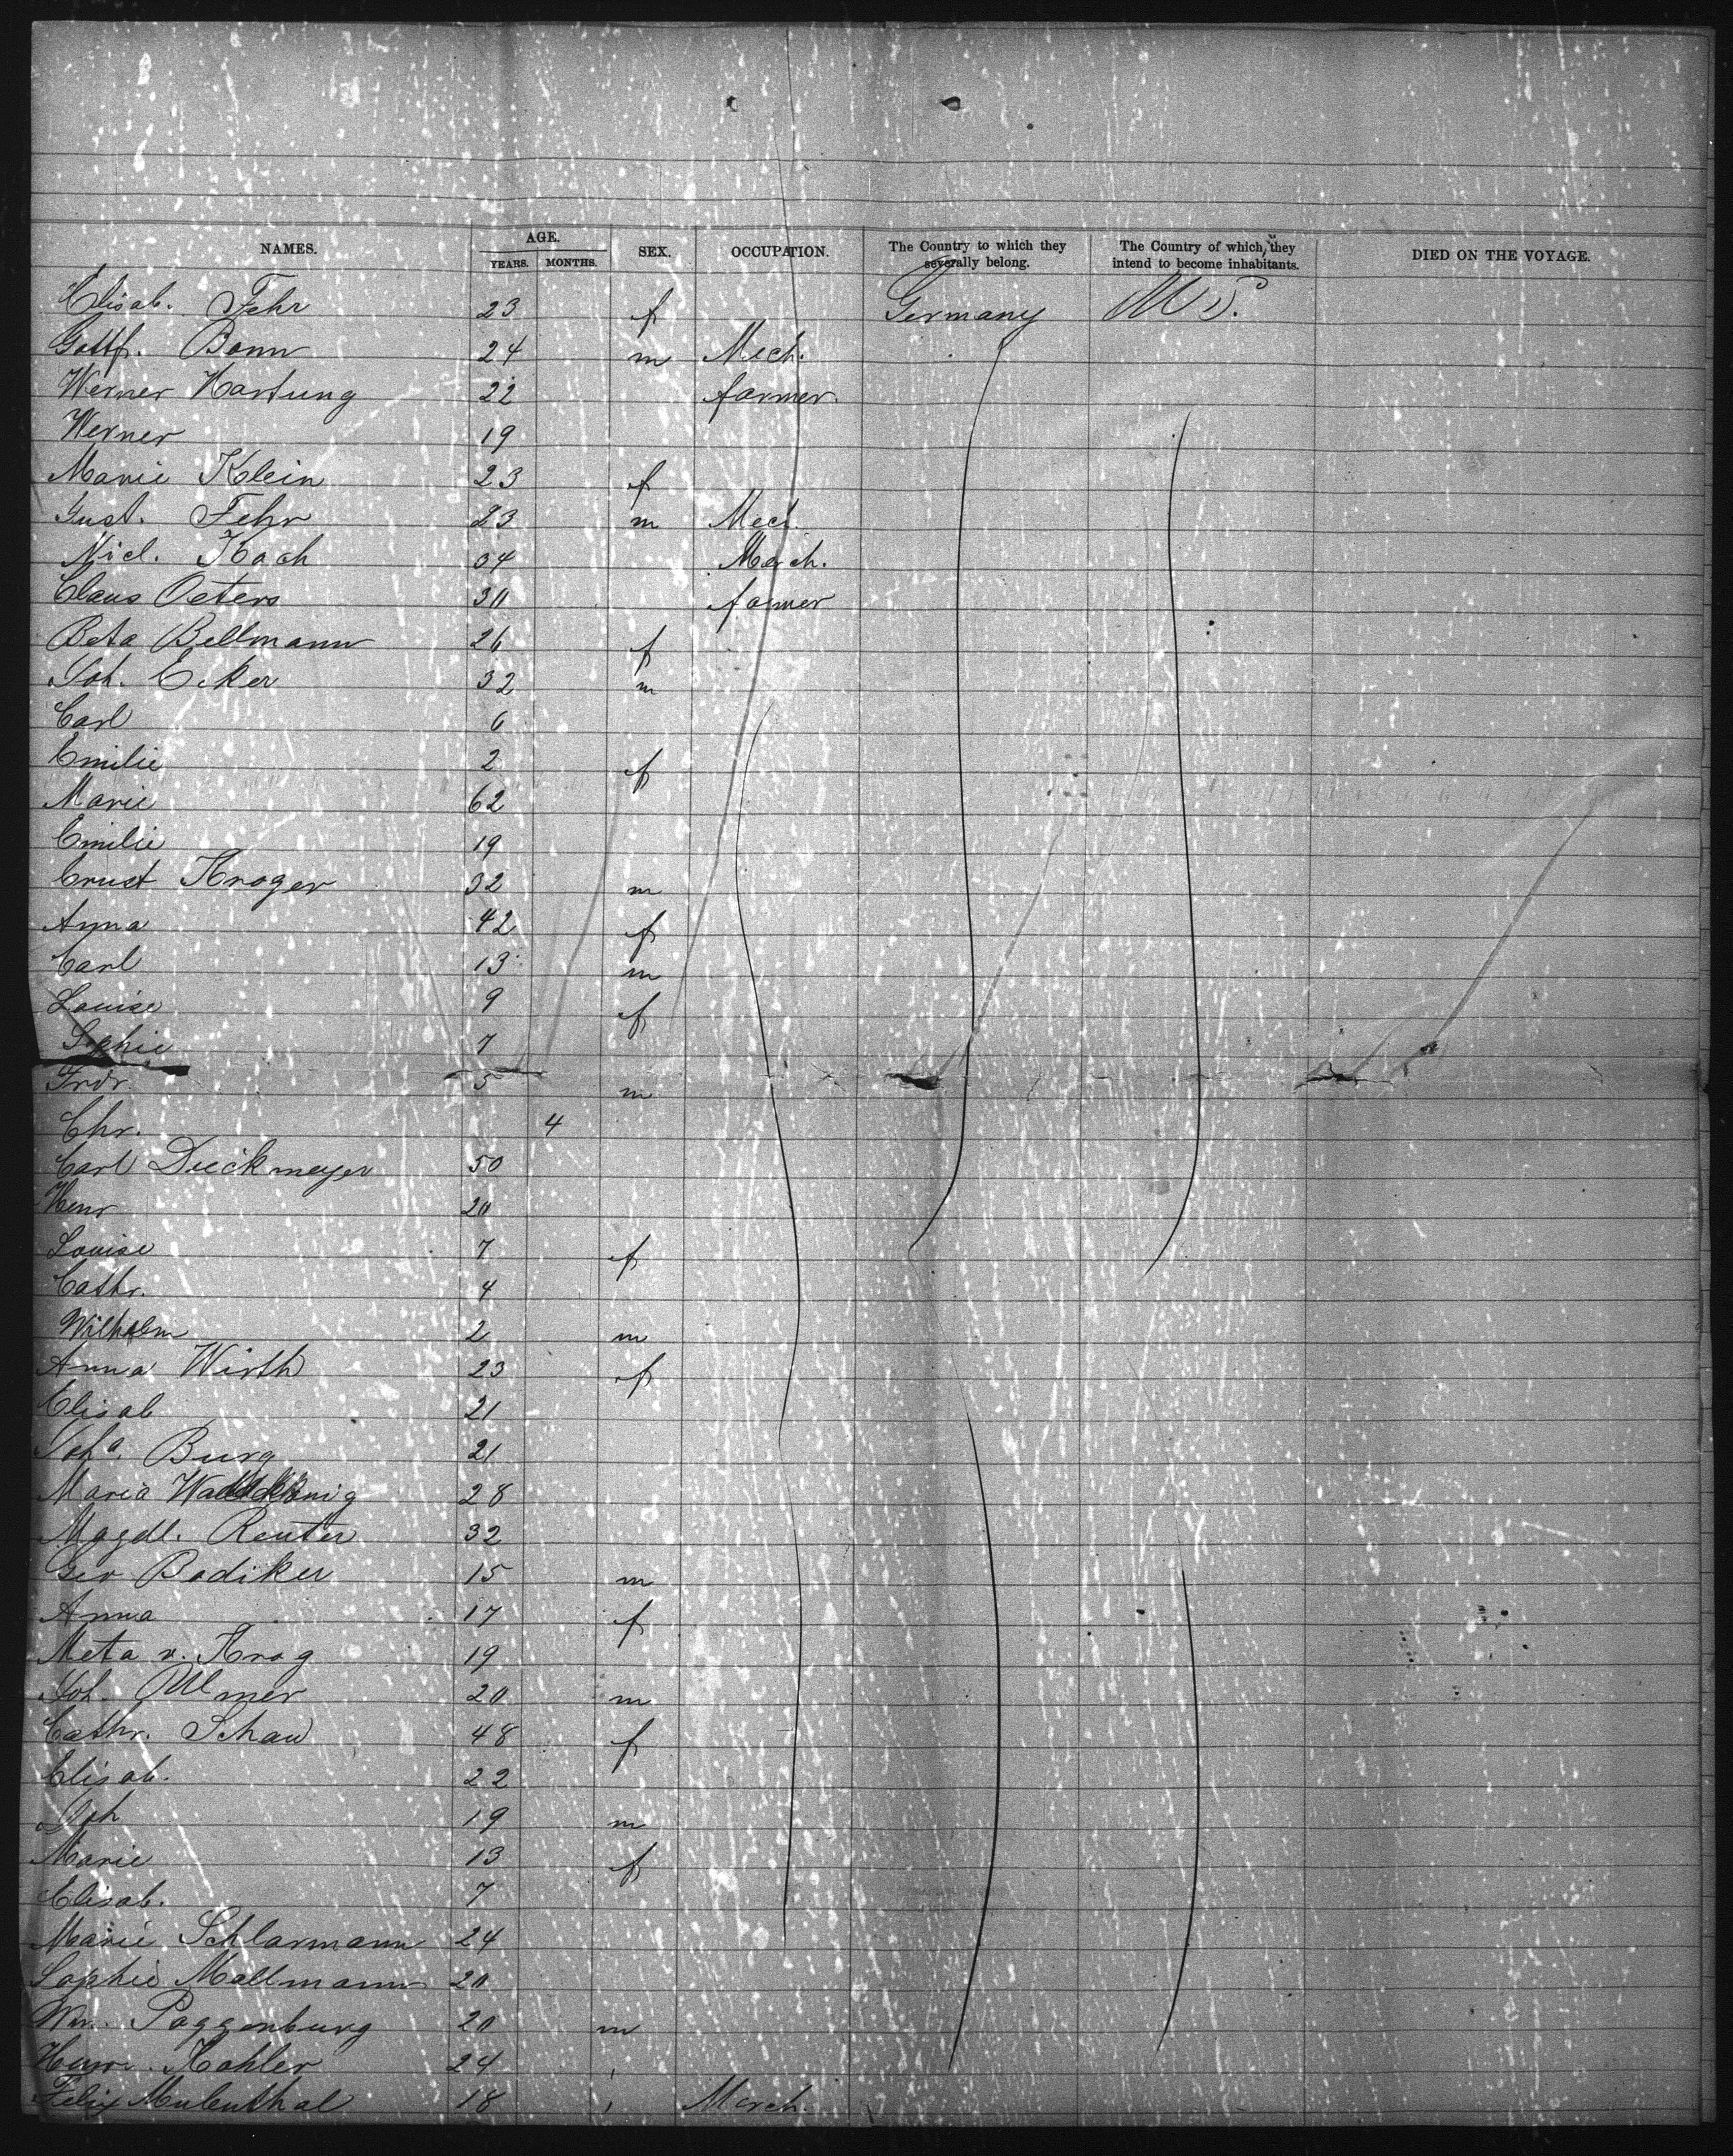 NAMES. AGE. YEARS. MONTHS. SEX. OCCUPATION. The Country to which they severally belong. The Country of which they intend to become inhabitants. DIED ON THE VOYAGE.
Elisab. Fehr 23 f Germany U S.
Gottf. Bonn 24 m Mech.
Werner Hartung 22 farmer.
Werner 19
Marie Klein 23 f
Gust. Fehr 23 m Mech.
Nicl. Koch 34 Merch.
Claus Peters 30 farmer
Beta Bellmann 26 f
Joh. Ecker 32 m
Carl 6
Emilie 2 f
Marie 62
Emilie 19
Ernst Kroger 32 m
Anna 42 f
Carl 13 m
Louise 9 f
Sophie 7
Frdr. 5 m
Chr. 4
Carl Dieckmeyer 50
Henr 20
Louise 7 f
Cathr. 4
Wilhelm 2 m
Anna Wirth 23 f
Elisab 21
Joha. Burg 21
Maria 28
Magdl. Reuter 32
Geo Bodiker 15 m
Anna 17 f
Meta v. Krog 19
Joh. Ullmer 20 m
Cathr. Schau 48 f
Elisab. 22
Joh 19 m
Marie 13 f
Elisab. 7
Marie Schlarmann 24
Sophie Mallmann 20
Wm. Poggenburg 20 m
Henr. Kohler 24
Felix Mulenthal 18 Merch.